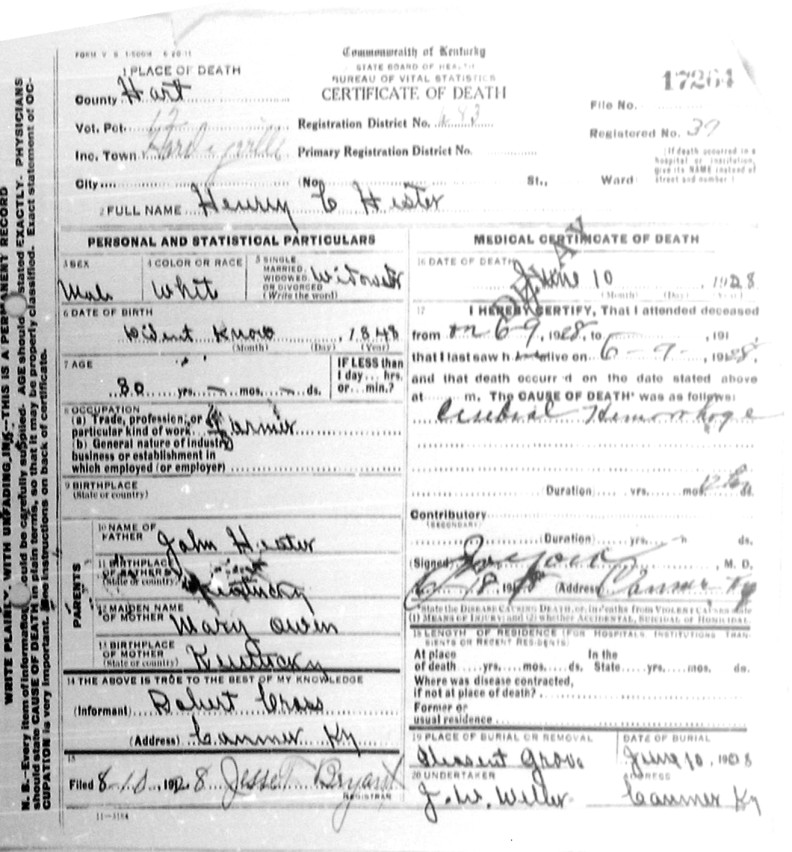 FORM V. S. 1-500M 6-20-11
Commonwealth of Kentucky
STATE BOARD OF HEALTH
BUREAU OF VITAL STATISTICS
CERTIFICATE OF DEATH
17264
1 PLACE OF DEATH
County Hart
Vot. Pct.
Registration District No.
File No.
Inc. Town Hardyville
Primary Registration District No.
Registered No. 37
City (No. St., Ward
(If death occurred in a
hospital or institution,
give its NAME instead of
street and number.)
2 FULL NAME Henry C Hester
PERSONAL AND STATISTICAL PARTICULARS
3 SEX
Male
4 COLOR OR RACE
Whit
5 SINGLE
MARRIED,
WIDOWED
OR DIVORCED
(Write the word)
Widower
6 DATE OF BIRTH
Know, 1848
(Month) (Day) (Year)
7 AGE
80 yrs. mos. ds.
IF LESS than
1 day... hrs.
or... min.?
8 OCCUPATION
(a) Trade, profession, or
particular kind of work Farmer
(b) General nature of industry
business or establishment in
which employed (or employer)
9 BIRTHPLACE
(State or country)
PARENTS
10 NAME OF
FATHER
John Hester
11 BIRTHPLACE
OF FATHER
(State or country)
Kentucky
12 MAIDEN NAME
OF MOTHER
Mary Owen
13 BIRTHPLACE
OF MOTHER
(State or country)
Kentucky
14 THE ABOVE IS TRUE TO THE BEST OF MY KNOWLEDGE
(Informant) Robert Cross
(Address) Canmer Ky
15
Filed 8-10, 1928 Jesse T Bryant
REGISTRAR
11-3184
MEDICAL CERTIFICATE OF DEATH
16 DATE OF DEATH
June 10, 1928
(Month) (Day) (Year)
DELAY
17 I HEREBY CERTIFY, That I attended deceased
from on 6-9, 1928, to , 191
that I last saw h alive on 6-9-, 1928,
and that death occurr d on the date stated above
at m. The CAUSE OF DEATH* was as follows:
Cerebral Hemorrhage
Duration yrs. mos. ds.
Contributory
(SECONDARY)
Duration yrs. ds.
(Signed) M. D.
(Address) Canmer Ky
*State the DISEASE CAUSING DEATH, or, in deaths from VIOLENT CAUSES state
(1) MEANS OF INJURY; and (2) whether ACCIDENTAL, SUICIDAL or HOMICIDAL
18 LENGTH OF RESIDENCE (FOR HOSPITALS, INSTITUTIONS, TRAN-
SIENTS OR RECENT RESIDENTS)
At place In the
of death yrs. mos. ds. State yrs. mos. ds.
Where was disease contracted,
if not at place of death?
Former or
usual residence
19 PLACE OF BURIAL OR REMOVAL
Pleasent Grove
DATE OF BURIAL
June 10, 1928
20 UNDERTAKER
J. W. Weller
ADDRESS
Canmer Ky
WRITE PLAINLY, WITH UNFADING INK—THIS IS A PERMANENT RECORD
N. B.—Every item of information should be carefully supplied. AGE should be stated EXACTLY. PHYSICIANS
should state CAUSE OF DEATH in plain terms, so that it may be properly classified. Exact statement of OC-
CUPATION is very important. See instructions on back of certificate.